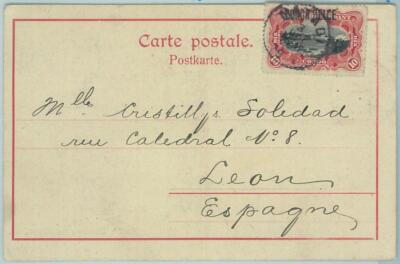 Carte postale.
Postkarte.
10 10
Mlle Cristillys Soledad
rue Catedral Nº 8.
Leon
Espagne